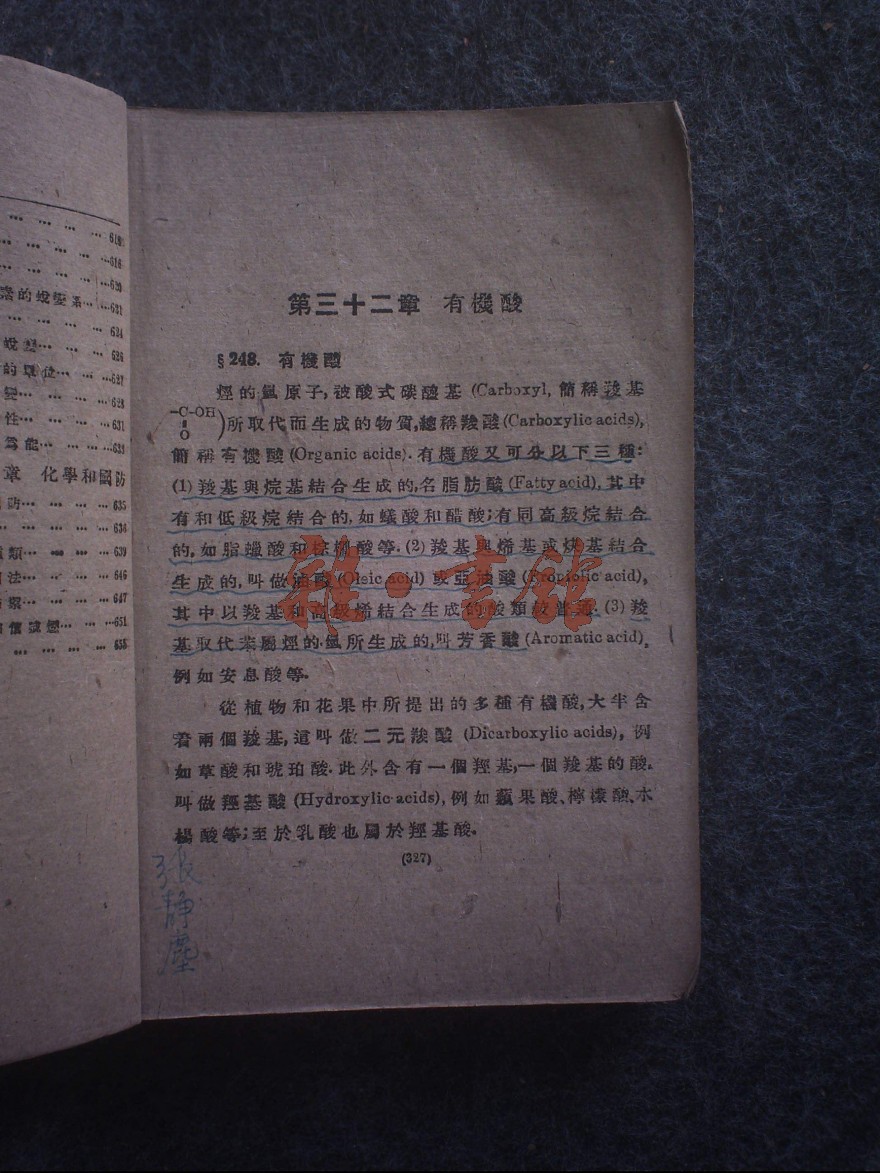 … … … … 618
… … … … 616
… … … 620
的蛻變系… …631
… … … … 624
蛻變… … … 626
的單位… …627
變… … … … 628
性… … … … 631
爲能… … … …633
章 化學和國防
防… … … … 635
… … … … 636
類… … … … 639
法… … … … 646
… … … … 647
煙… … …651
… … … … 655
第三十二章 有機酸
§248. 有機酸
烴的氫原子,被酸式碳醯基 (Carboxyl, 簡稱羧基
-C-OH
O
)所取代而生成的物質,總稱羧酸(Carboxylic acids),
簡稱有機酸(Organic acids). 有機酸又可分以下三種:
(1) 羧基與烷基結合生成的,名脂肪酸(Fatty acid), 其中
有和低級烷結合的,如蟻酸和醋酸;有同高級烷結合
的,如脂蠟酸和棕櫚酸等. (2) 羧基與烯基或炔基結合
生成的,叫做油酸(Oleic acid) 或亞油酸(Propiolic acid),
其中以羧基和高級烯結合生成的酸類較普通. (3) 羧
基取代苯屬烴的氫所生成的,叫芳香酸(Aromatic acid),
例如安息酸等.
從植物和花果中所提出的多種有機酸,大半含
着兩個羧基,這叫做二元羧酸 (Dicarboxylic acids), 例
如草酸和琥珀酸. 此外含有一個羥基,一個羧基的酸.
叫做羥基酸 (Hydroxylic acids), 例如蘋果酸、檸檬酸、水
楊酸等;至於乳酸也屬於羥基酸.
(327)
張靜塵
雜·書館